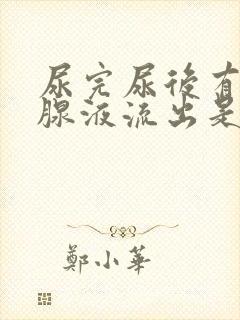 尿完尿後有
腺液流出是
鄭小華